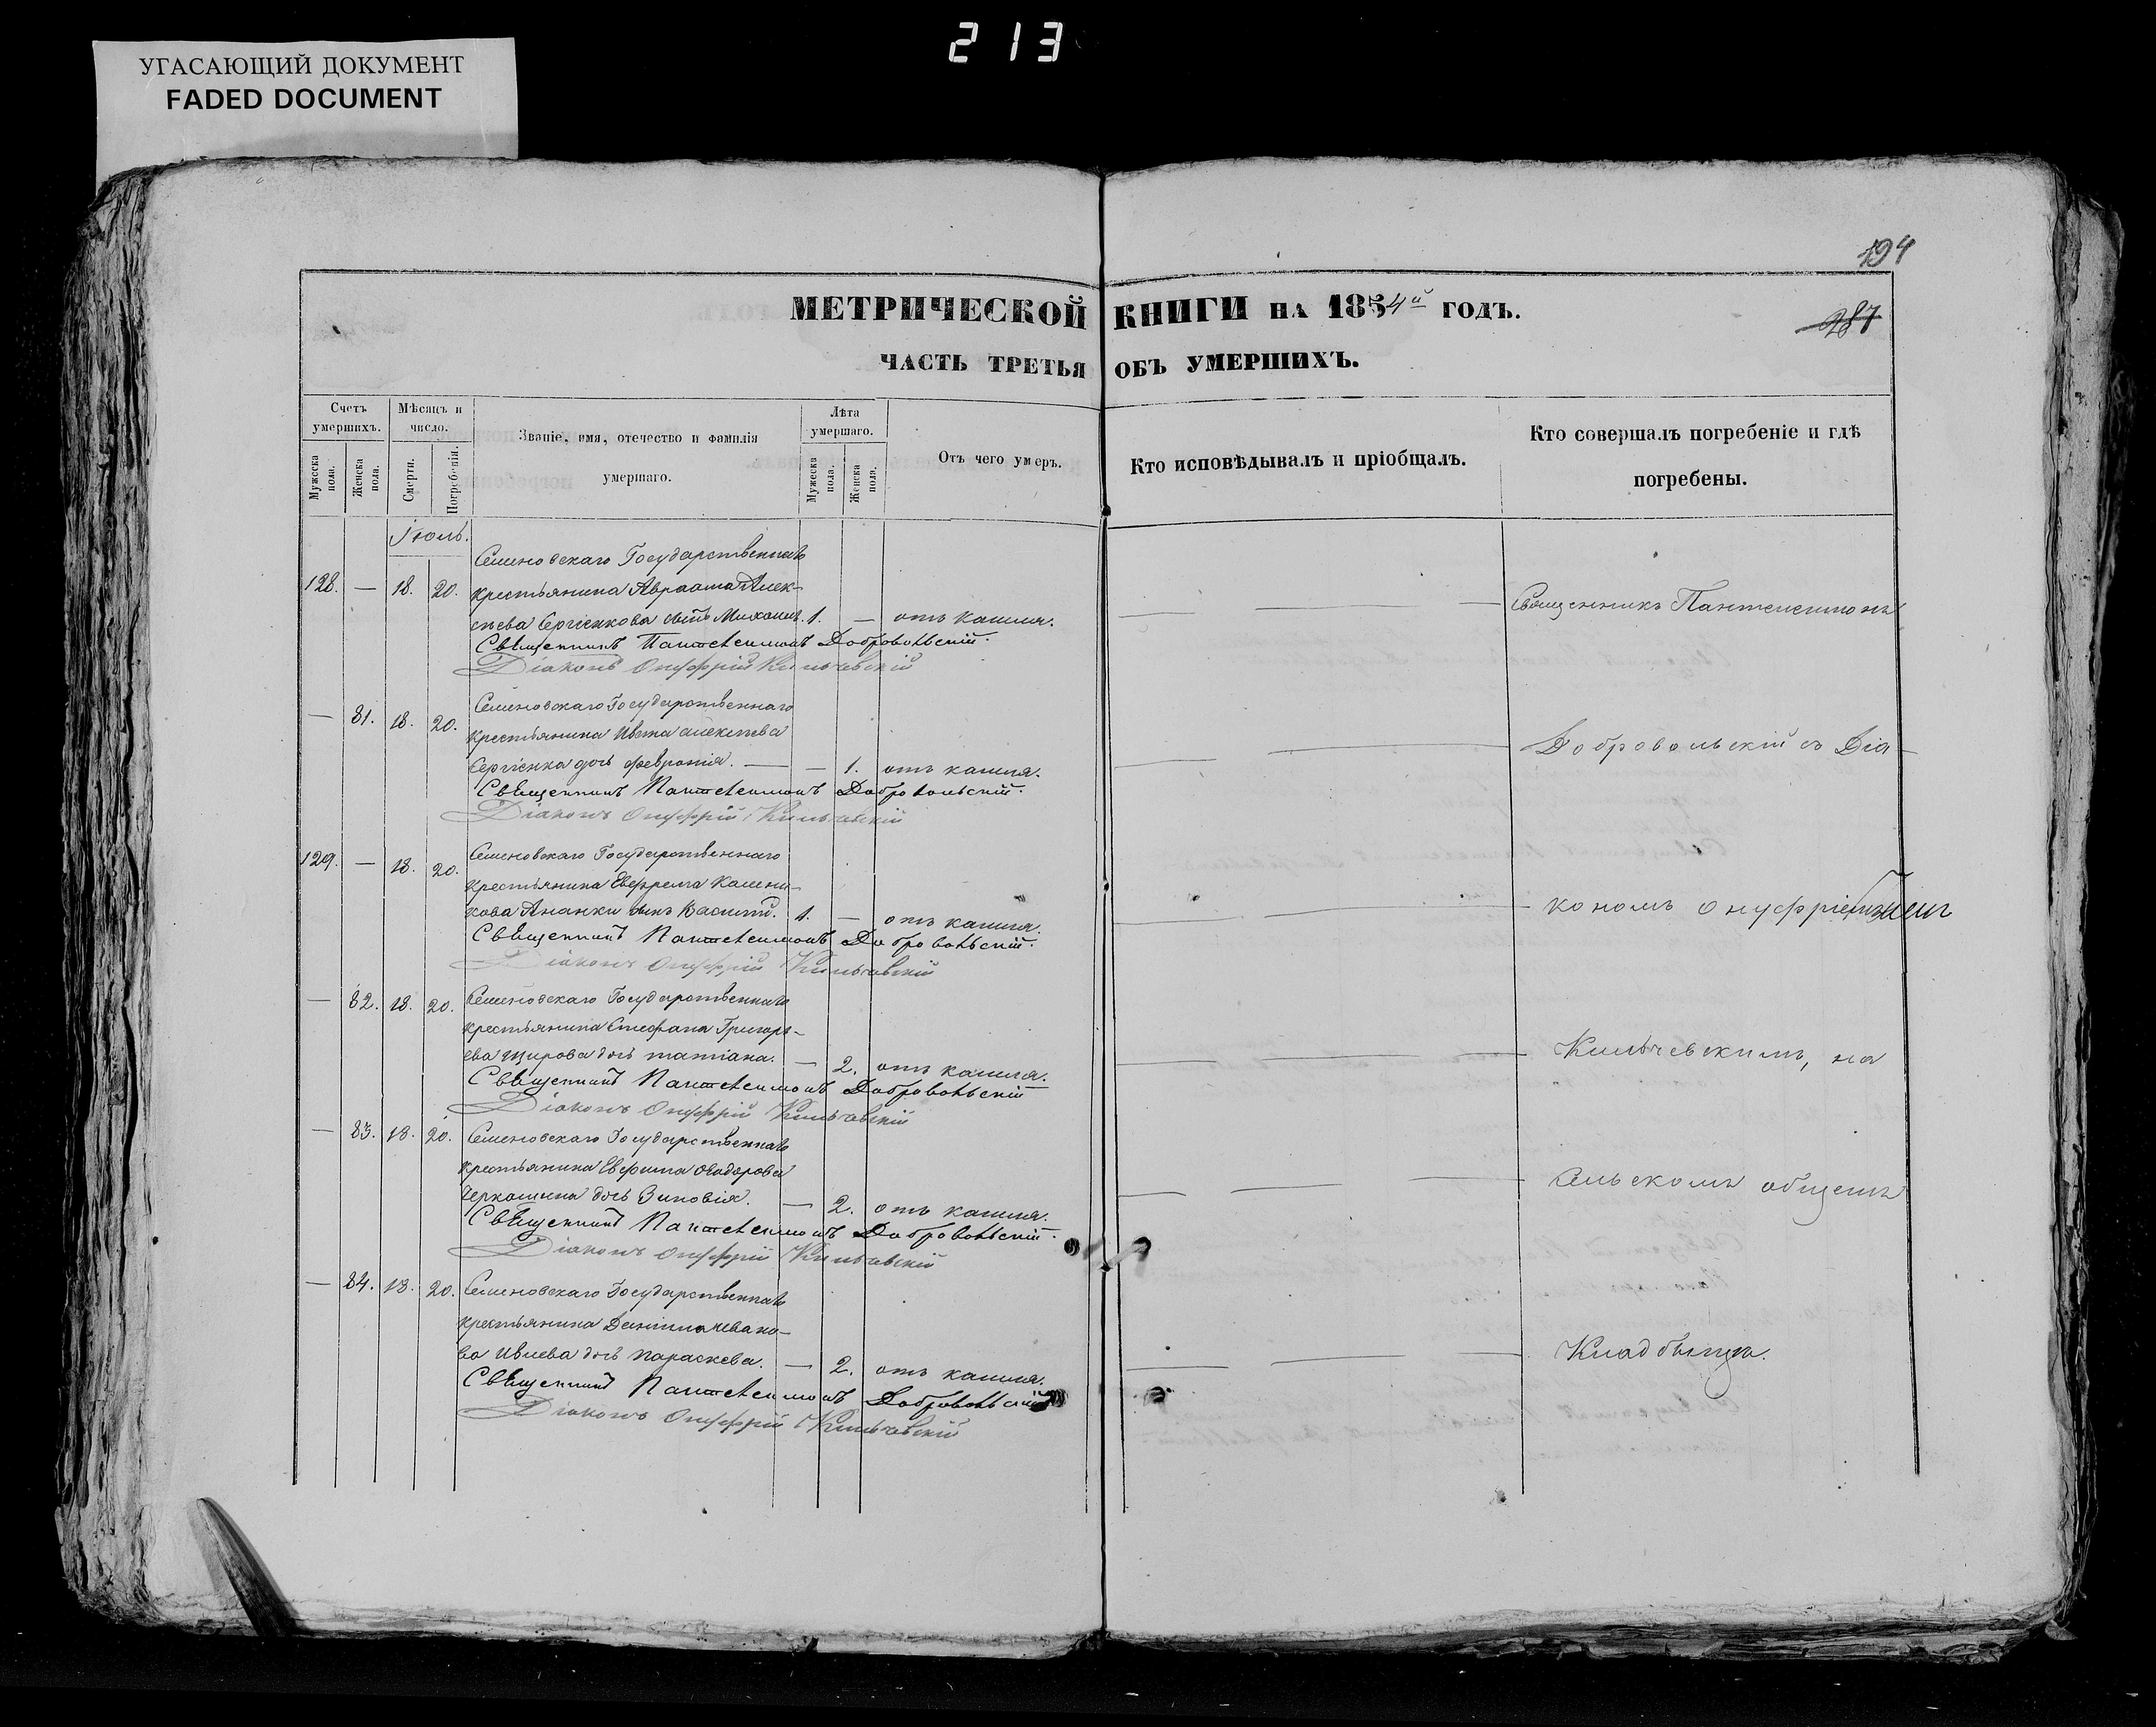 213
УГАСАЮЩИЙ ДОКУМЕНТ
FADED DOCUMENT
194
287
МЕТРИЧЕСКОЙ КНИГИ НА 1854й ГОДЪ.
ЧАСТЬ ТРЕТЬЯ ОБЪ УМЕРШИХЪ.
Счетъ умершихъ.
Мужеска пола.
Женска пола.
Мѣсяцъ и число.
Смерти.
Погребенія.
Званіе, имя, отечество и фамилія умершаго.
Лѣта умершаго.
Мужеска пола.
Женска пола.
Отъ чего умеръ.
Кто исповѣдывалъ и пріобщалъ.
Кто совершалъ погребеніе и гдѣ погребены.
Іюль.
Семеновскаго Государственнаго
128. — 18. 20. крестьянина Авраама Алек-
сѣева Сергіенкова сынъ Михаилъ 1. — отъ кашля.
Священникъ Пантелеимонъ Добровольскій.
Діаконъ Онуфрій Кильчевскій
Семеновскаго Государственнаго
— 81. 18. 20. крестьянина Ивана Алексѣева
Сергіенка дочь Февронія. — — 1. отъ кашля.
Священникъ Пантелеимонъ Добровольскій.
Діаконъ Онуфрій Кильчевскій
129. — 18. 20. Семеновскаго Государственнаго
крестьянина Евфрема
Ананки сынъ Василій. 1. — отъ кашля.
Священникъ Пантелеимонъ Добровольскій.
Діаконъ Онуфрій Кильчевскій
— 82. 18. 20. Семеновскаго Государственнаго
крестьянина Стефана Григорь-
ева дочь Татіана. — 2. отъ кашля.
Священникъ Пантелеимонъ Добровольскій
Діаконъ Онуфрій Кильчевскій
— 83. 18. 20. Семеновскаго Государственнаго
крестьянина Евфима Ѳеодорова
Черкашина дочь Зиновія. — 2. отъ кашля.
Священникъ Пантелеимонъ Добровольскій.
Діаконъ Онуфрій Кильчевскій
— 84. 18. 20. Семеновскаго Государственнаго
крестьянина Даніила
Ивлева дочь Параскева. — 2. отъ кашля.
Священникъ Пантелеимонъ Добровольскій
Діаконъ Онуфрій Кильчевскій
Священникъ Пантелеимонъ
Добровольскій съ Діа-
кономъ Онуфріемъ
Кильчевскимъ, на
сельскомъ общемъ
Кладбищѣ.